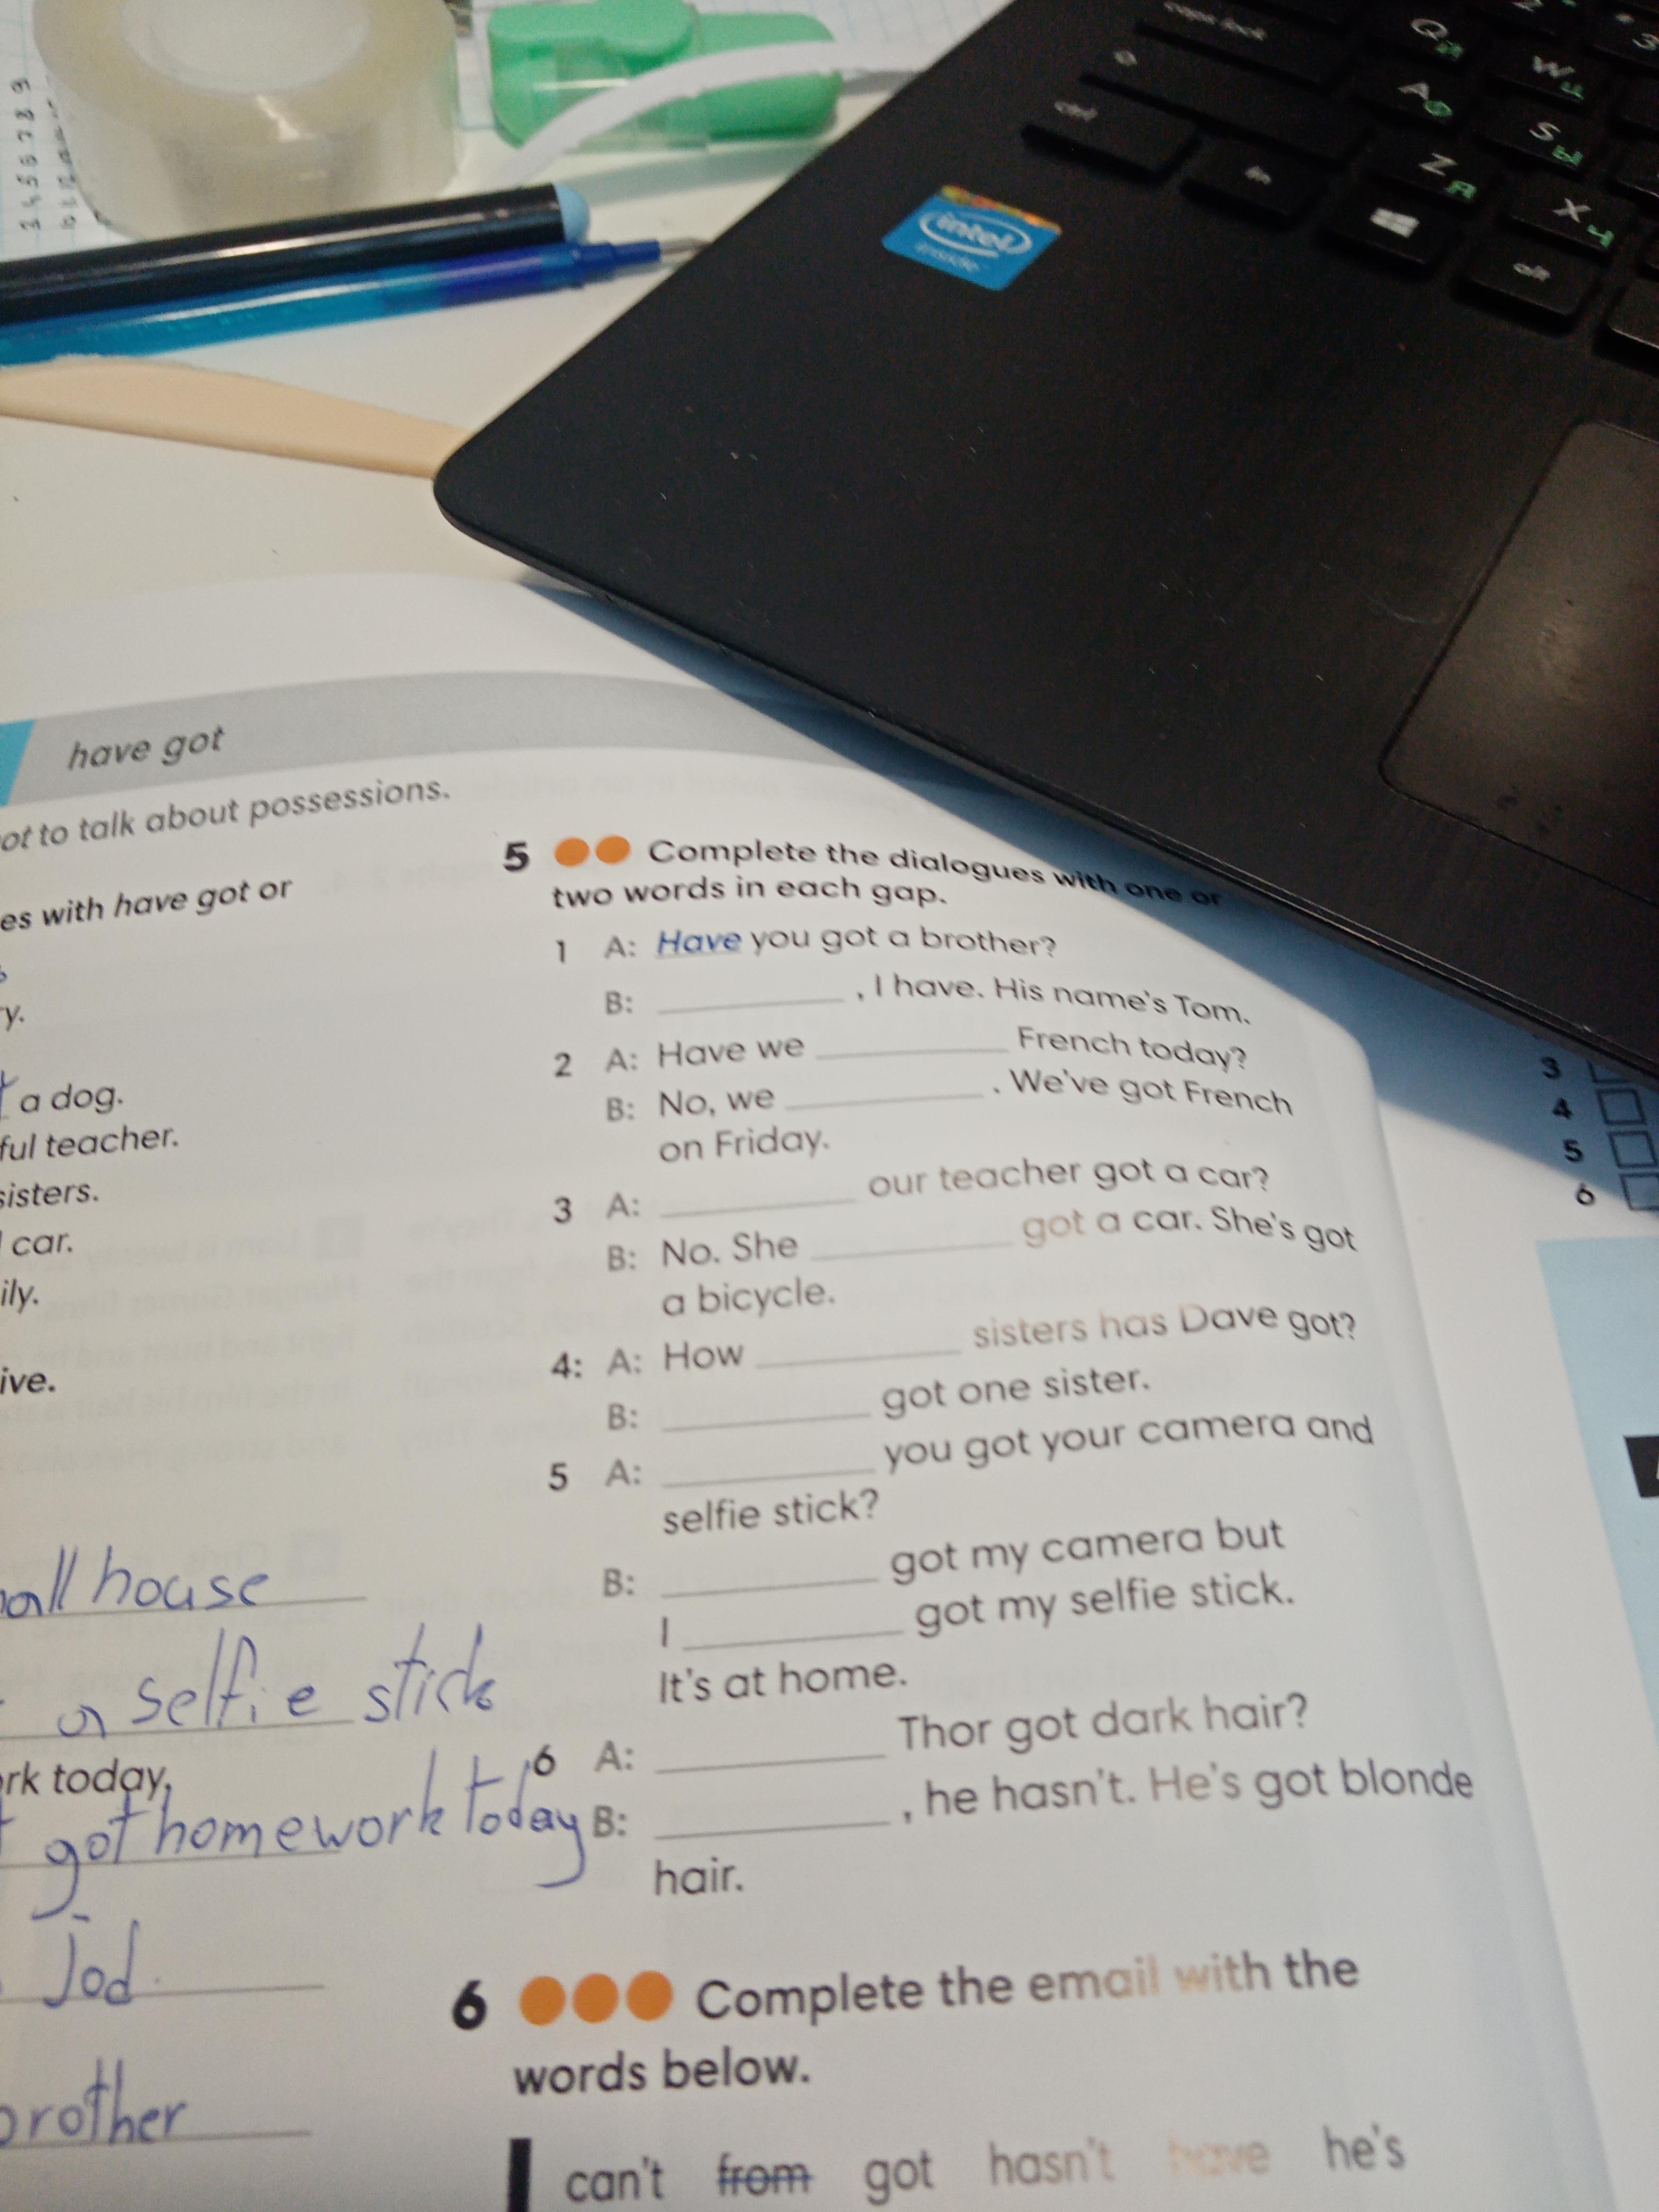 3 4 5 6 7 8 9
caps lock
Q Й
W Ц
2
3
ctrl
A Ф
S Ы
fn
Z Я
X Ч
alt
intel
inside
have got
ot to talk about possessions.
es with have got or
y.
a dog.
ful teacher.
sisters.
car.
ily.
ive.
all house
a selfie stick
rk today,
got homework today
jod.
brother
5 Complete the dialogues with one or
two words in each gap.
1 A: Have you got a brother?
B: , I have. His name's Tom.
2 A: Have we French today?
B: No, we . We've got French
on Friday.
3 A: our teacher got a car?
B: No. She got a car. She's got
a bicycle.
4: A: How sisters has Dave got?
B: got one sister.
5 A: you got your camera and
selfie stick?
B: got my camera but
I got my selfie stick.
It's at home.
6 A: Thor got dark hair?
B: , he hasn't. He's got blonde
hair.
6 Complete the email with the
words below.
can't from got hasn't have he's
3
4
5
6